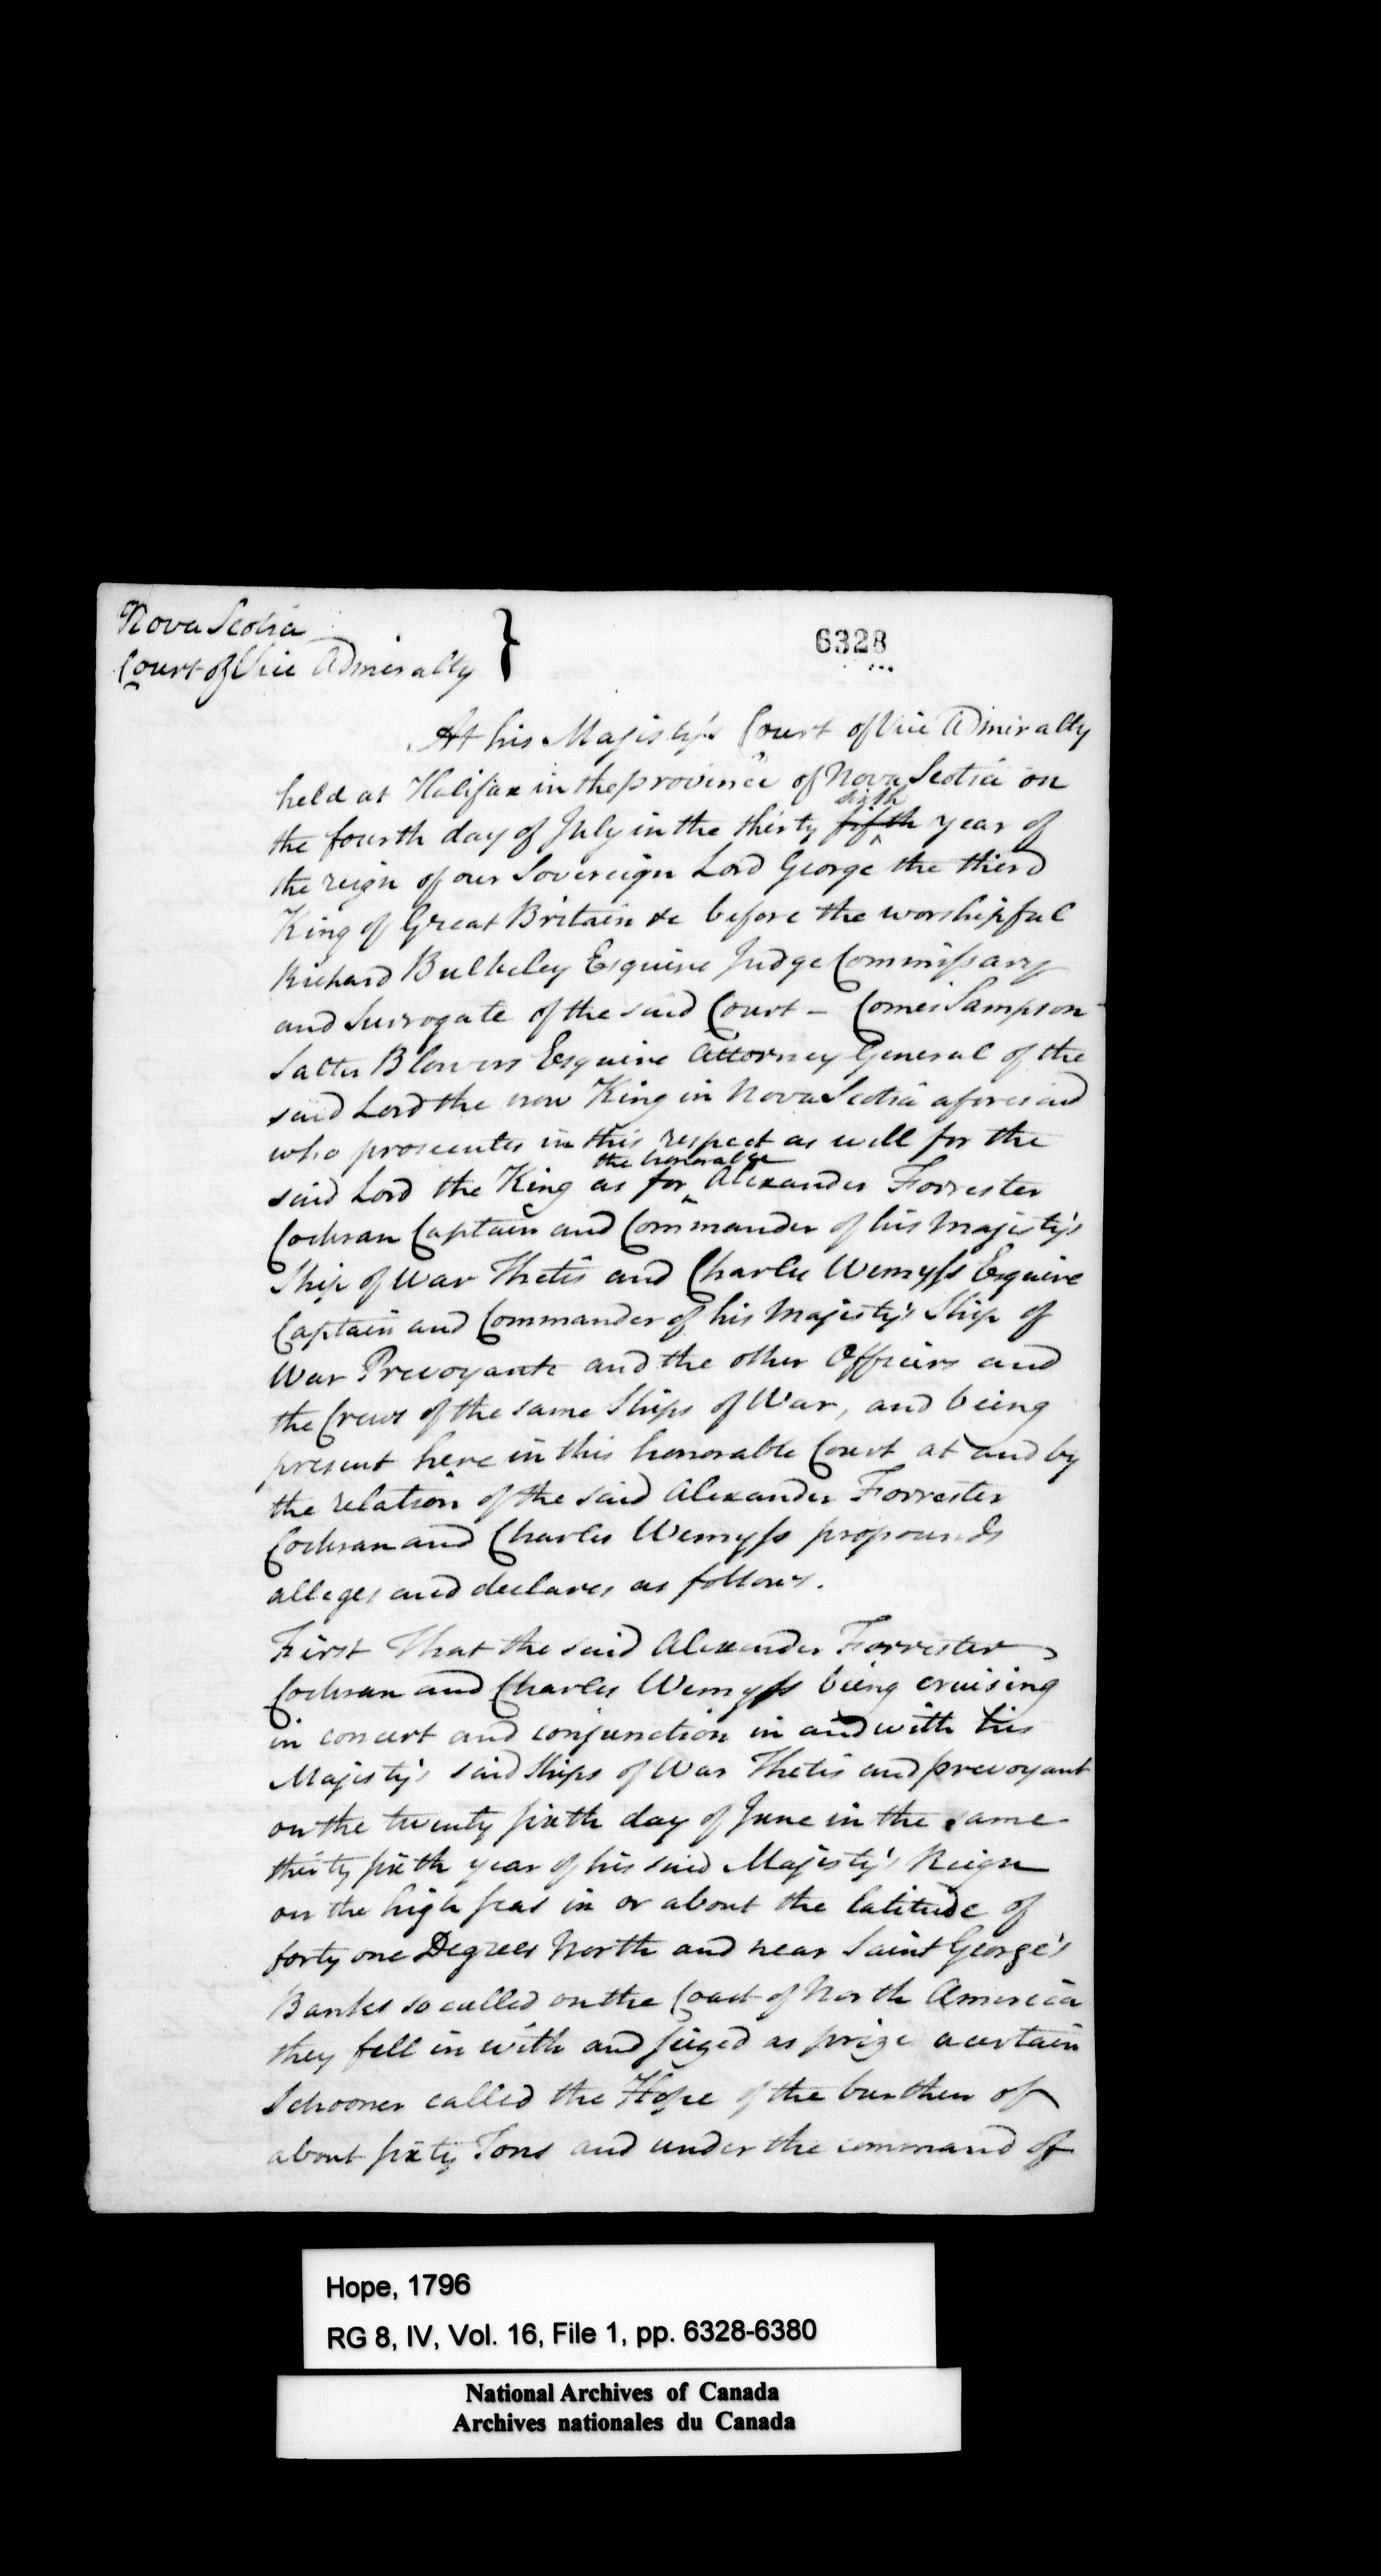 Nova Scotia
Court of Vice Admiralty }
6328
At his Majesty's Court of Vice Admiralty
held at Halifax in the province of Nova Scotia on
sixth
the fourth day of July in the thirty fifth year of
the reign of our Sovereign Lord George the third
King of Great Britain &c before the worshipful
Richard Bulkeley Esquire Judge Commissary
and Surrogate of the said Court – Comes Sampson
Salter Blowers Esquire Attorney General of the
said Lord the now King in Nova Scotia aforesaid
who prosecutes in this respect as well for the
the honorable
said Lord the King as for Alexander Forrester
Cochran Captain and Commander of his Majesty's
Ship of War Thetis and Charles Wemyss Esquire
Captain and Commander of his Majesty's Ship of
War Prevoyante and the other Officers and
the Crews of the same Ships of War, and being
present here in this honorable Court at and by
the relation of the said Alexander Forrester
Cochran and Charles Wemyss propounds
alleges and declares as follows.
First That the said Alexander Forrester
Cochran and Charles Wemyss being cruising
in concert and conjunction in and with his
Majesty's said Ships of War Thetis and prevoyant
on the twenty sixth day of June in the same
thirty sixth year of his said Majesty's Reign
on the high seas in or about the latitude of
forty one Degrees North and near Saint George's
Banks so called on the Coast of North America
they fell in with and seized as prize a certain
Schooner called the Hope of the burthen of
about sixty Tons and under the command of
Hope, 1796
RG 8, IV, Vol. 16, File 1, pp. 6328-6380
National Archives of Canada
Archives nationales du Canada